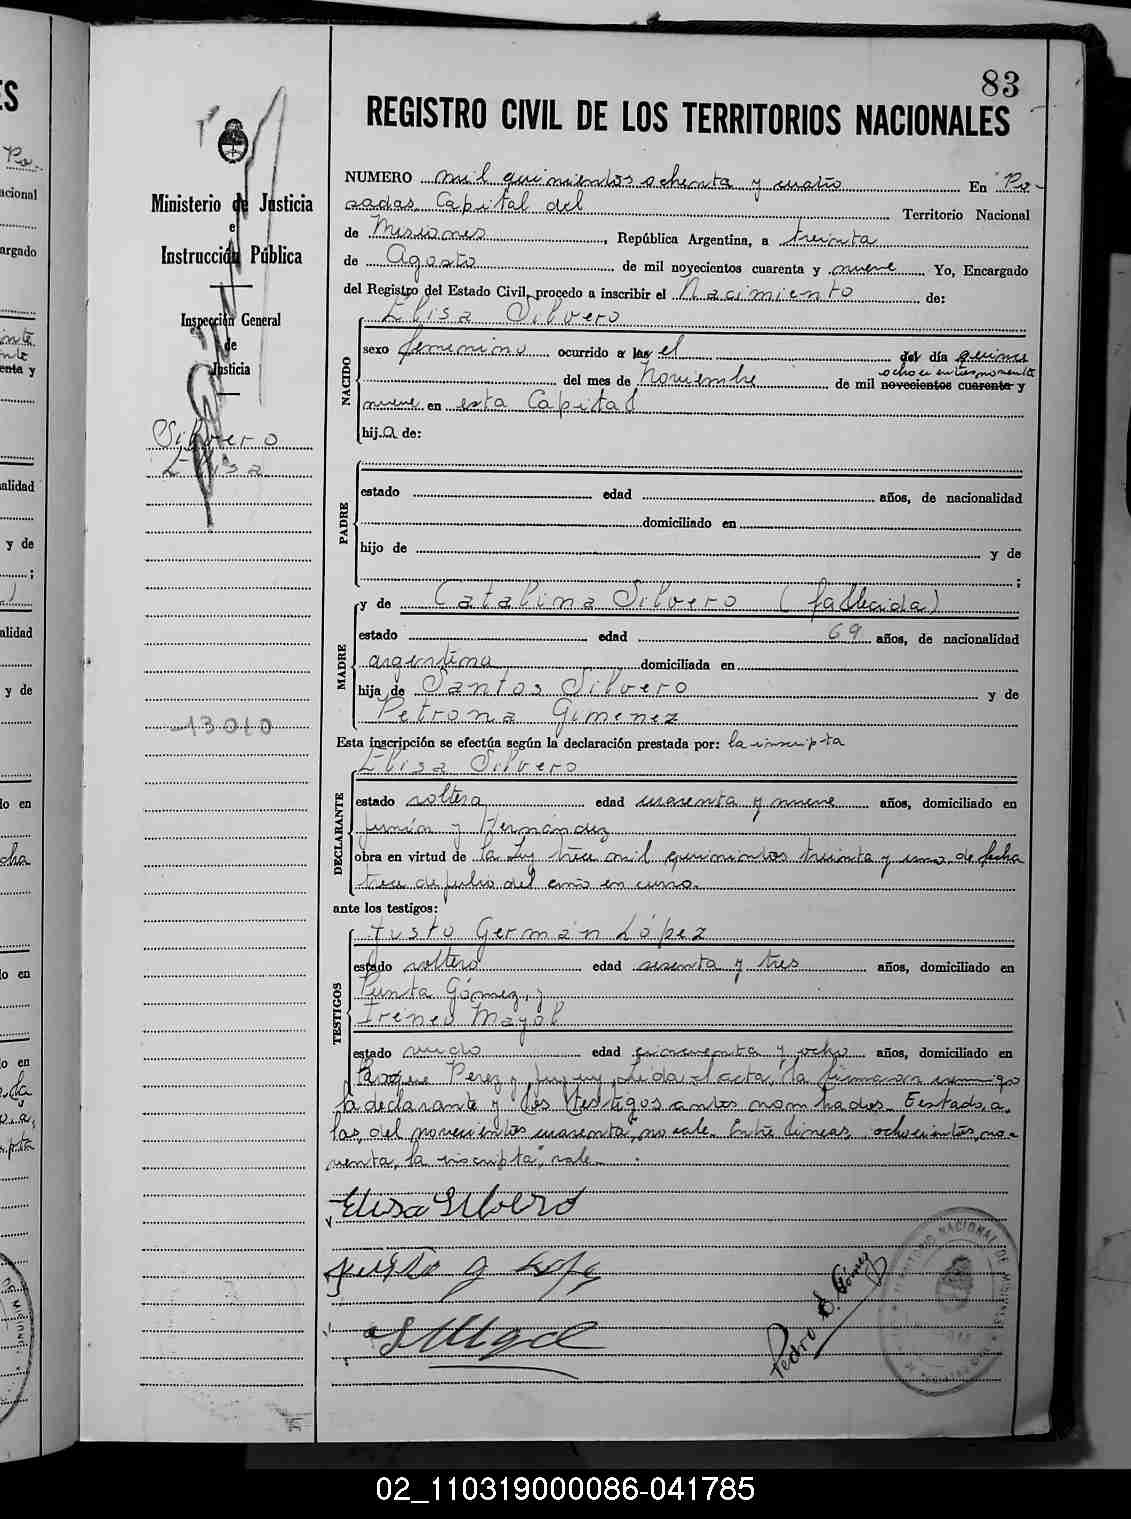 83
REGISTRO CIVIL DE LOS TERRITORIOS NACIONALES
Ministerio de Justicia
e
Instrucción Pública
Inspección General
de
Justicia
Silvero
Elisa
13010
NUMERO mil quinientos ochenta y cuatro En Po-
sadas Capital del Territorio Nacional
de Misiones, República Argentina, a treinta
de Agosto de mil novecientos cuarenta y nueve Yo, Encargado
del Registro del Estado Civil, procedo a inscribir el Nacimiento de:
Elisa Silvero
NACIDO
sexo femenino ocurrido a las el del día quince
ochocientos noventa
del mes de Noviembre de mil novecientos cuarenta y
nueve en esta Capital
hija de:
PADRE
estado edad años, de nacionalidad
domiciliado en
hijo de y de
;
y de Catalina Silvero (fallecida)
MADRE
estado edad 69 años, de nacionalidad
argentina domiciliada en
hija de Santos Silvero y de
Petrona Gimenez
Esta inscripción se efectúa según la declaración prestada por: la inscripta
Elisa Silvero
DECLARANTE
estado soltera edad cuarenta y nueve años, domiciliado en
Junín y Hernández
obra en virtud de la Ley trece mil quinientos treinta y uno de fecha
trece de julio del año en curso.
ante los testigos:
Justo Germán López
TESTIGOS
estado soltero edad sesenta y tres años, domiciliado en
Punta Gómez, y
Ireneo Mayol
estado viudo edad cincuenta y ocho años, domiciliado en
Roque Perez y Jujuy Leida el acta, la firmaron conmigo
la declarante y los testigos antes nombrados. Testado, a
las, del novecientos cuarenta, no vale. Entre líneas, ochocientos no-
venta, la inscripta, vale.
Elisa Silvero
Justo G Lopez
Pedro S. Gómez
TERRITORIO NACIONAL DE MISIONES
02_110319000086-041785